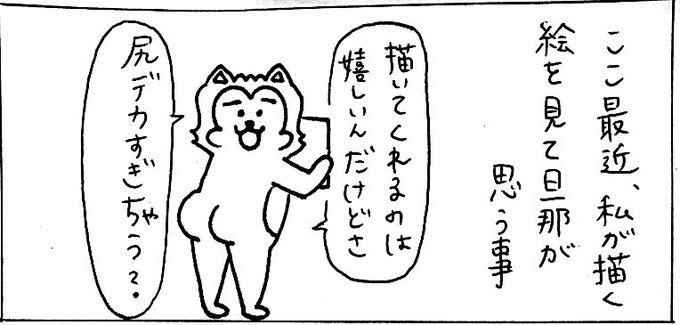 ここ最近、私が描く
絵を見て旦那が
思う事
描いてくれるのは
嬉しいんだけどさ
尻デカすぎちゃう?